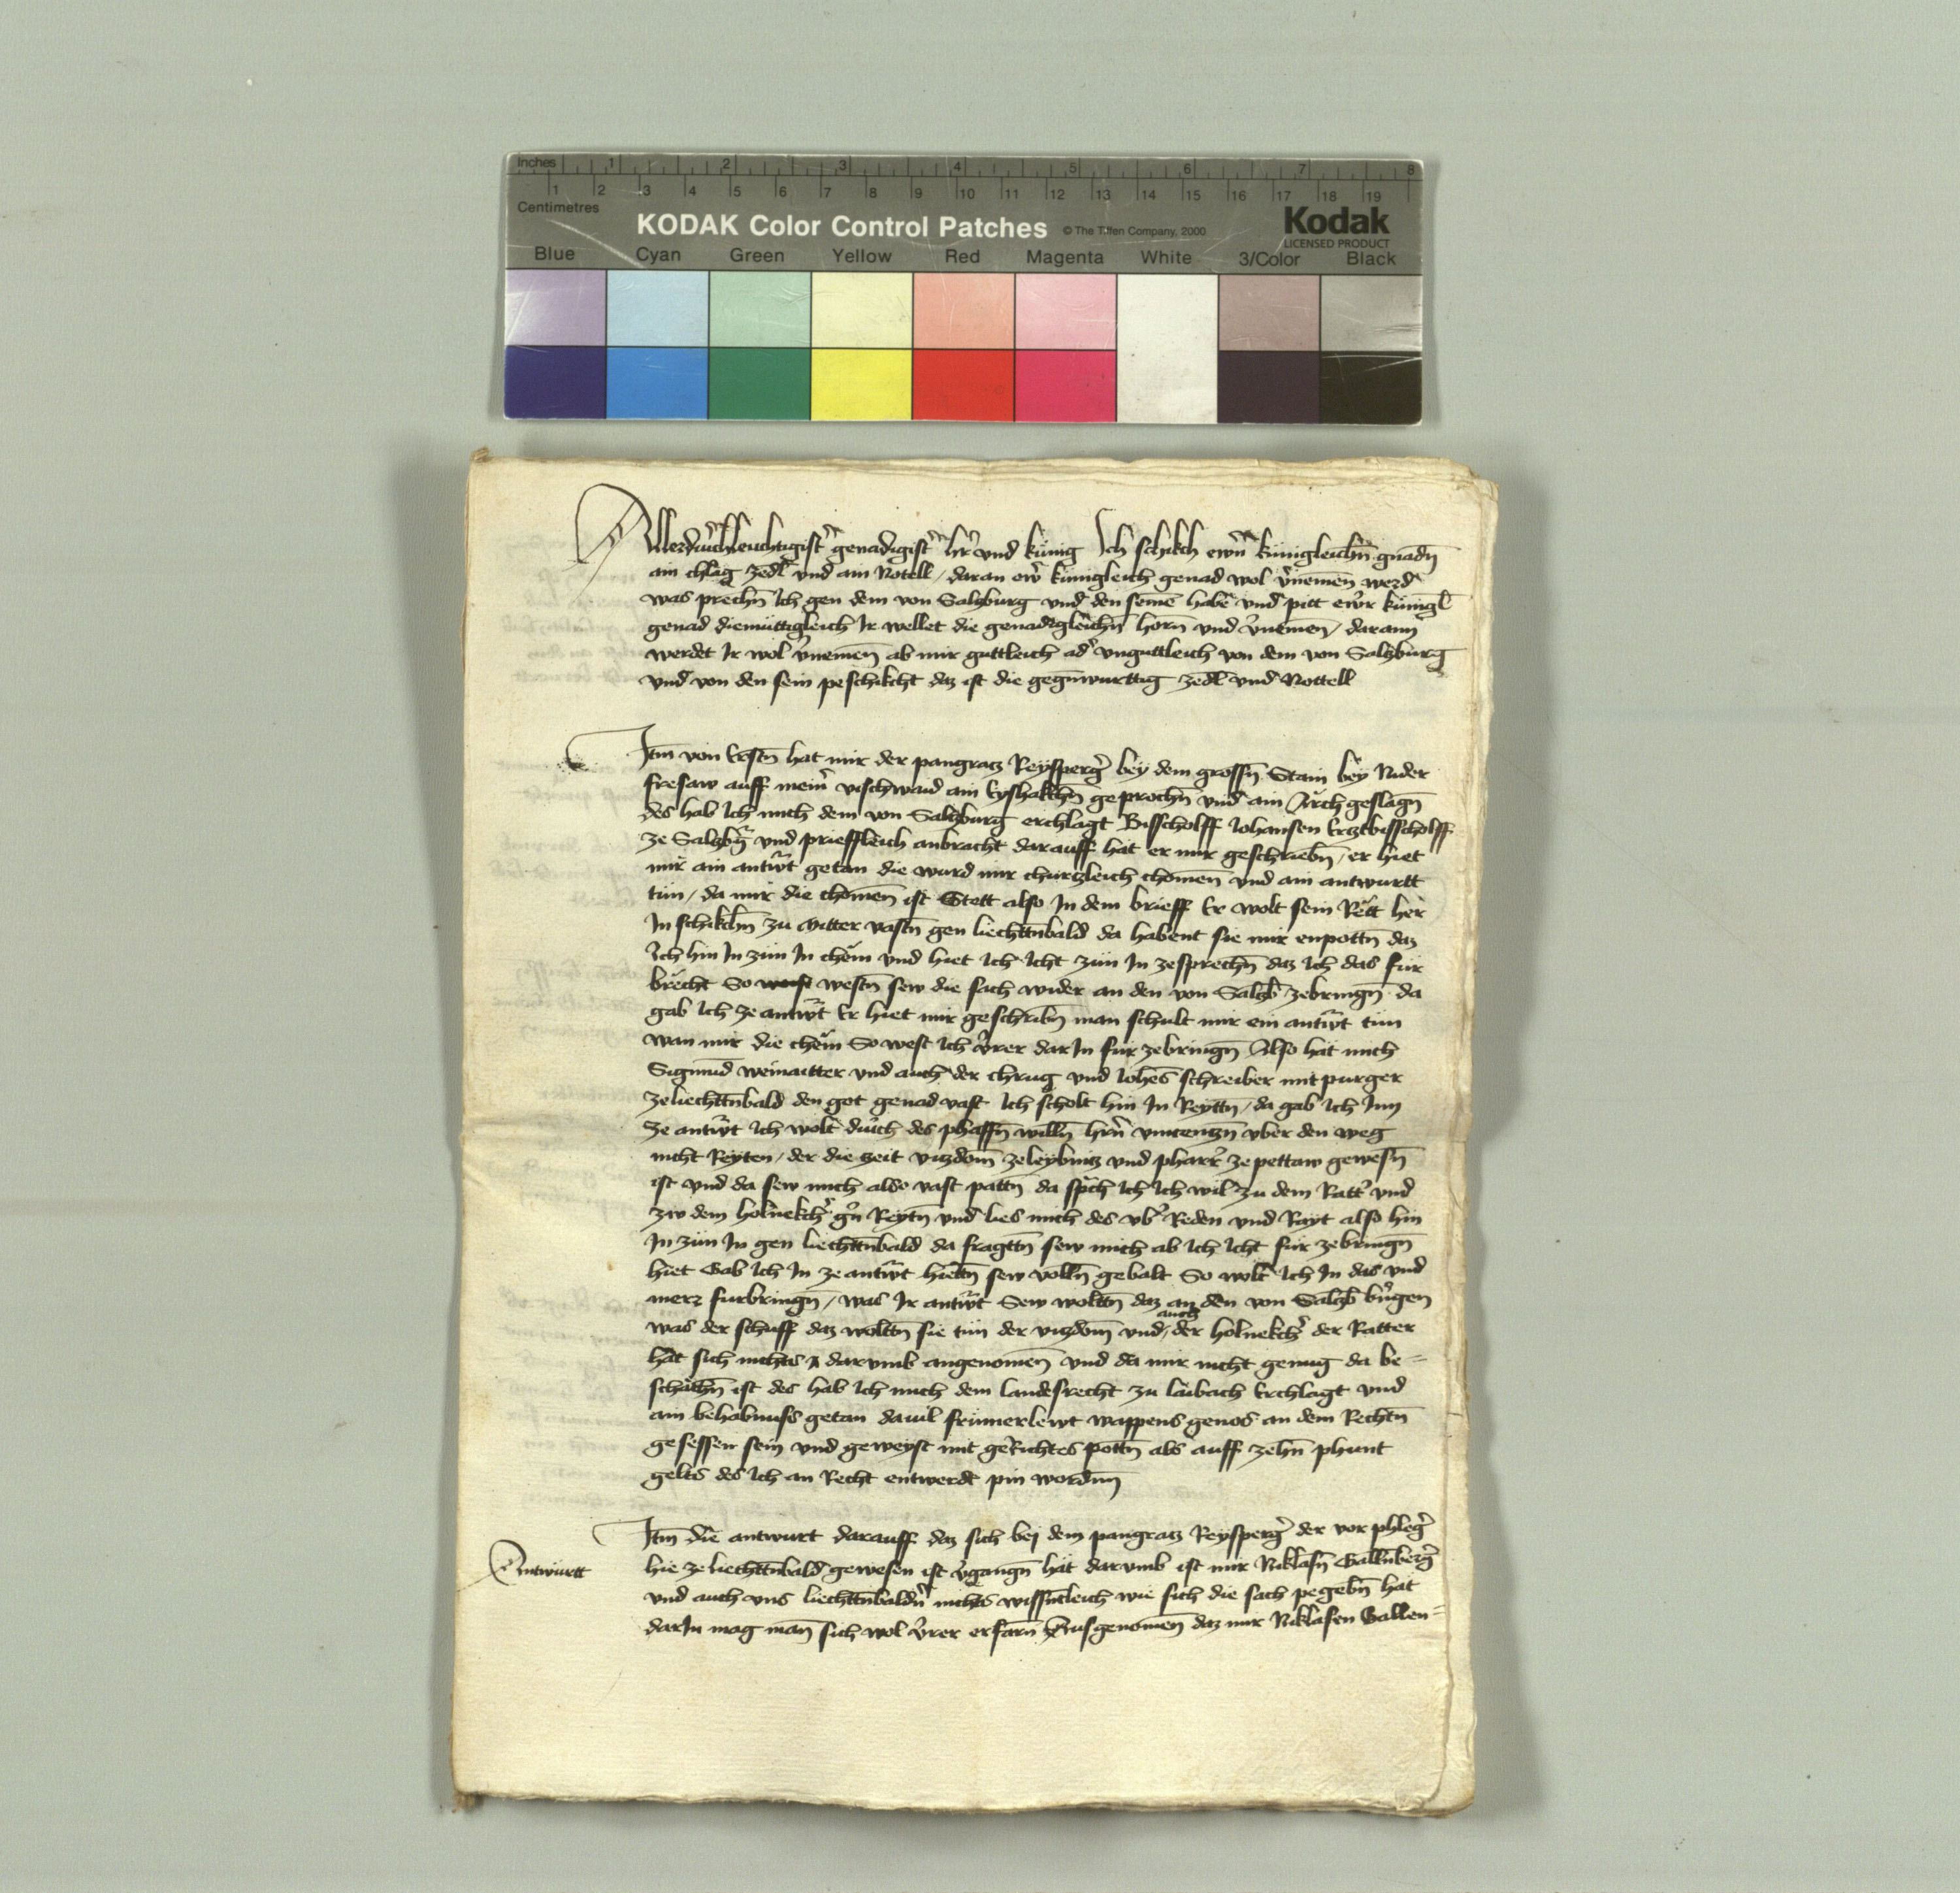 Inches 1 2 3 4 5 6 7 8
1 2 3 4 5 6 7 8 9 10 11 12 13 14 15 16 17 18 19
Centimetres
KODAK Color Control Patches © The Tiffen Company, 2000 Kodak
LICENSED PRODUCT
Blue Cyan Green Yellow Red Magenta White 3/Color Black
Allerdurchleuchtigist genadigist hr̄ vnd kunig Ich schikch ewrn̄ kunigleichn̄ gnadn̄
ain chlag zedl vnd ain Notell / daran ewr̄ kunigleich genad wol v̄nemen̄ werd
was prechn̄ Ich gen dem von Salzburg vnd den seinē habē vnd pitt ewr kunigl̄
genad diemuttigleich Ir wellet die genadigleichn̄ horn̄ vnd v̄nemen̄ / darann
werdet Ir wol v̄nemen̄ ab mir guttleich ad' vnguttleich von dem von Salzburg
vnd von den sein peschikcht daz ist die gegn̄wurttig zedl vnd Nottell
Itm̄ von Erstn̄ hat mir der pangratz Reysperg' bey dem grossn̄ Stain bey Nider
fresaw auff mein̄ vischwaid ain Eyshakchn̄ geprochn̄ vnd ain Arch geslagn̄
des hab Ich mich dem von Salzburg erchlagt Bisscholff Iohansen Ertzbisscholff
ze Salzb̄g vnd prieffleich anbracht darauff hat er mir geschriebn̄ / er hiet
mir ain antw̄t getan die wurd mir churtzleich chomen̄ vnd ain antwurtt
tun / da mir die chomen̄ ist Stett also In dem brieff Er wolt sein Rett her
In schikchn̄ zu Mitter vastn̄ gen liechttn̄bald da habent sie mir enpottn̄ daz
Ich hin In zun In chem vnd hiet Ich Icht zun In zesprechn̄ daz Ich das fur
brecht So westn̄ sew die sach wider an den von Salzb̄ zebringn̄ da
gab Ich ze antw̄t Er hiet mir geschribn̄ man schult mir ein antw̄t tun
wan mir die chem So west Ich v̄rer darIn fur zebringn̄ Also hat mich
Sigmund weinaitter vnd auch der chrug vnd Iohēs schreiber mitpurger
zeliechttn̄bald den got genad vast Ich scholt hin In Reyttn̄ / da gab Ich Inn
ze antw̄t Ich wolt durch des phaffn̄ willn̄ hrn̄ vincentzn̄ vber den weg
nicht Reyten / der die zeit vitzdom̄ zeleybnitz vnd pharr' ze pettaw gewesn̄
ist vnd da sew mich also vast pattn̄ da sprch Ich Ich wil zu dem Ratt' vnd
zw dem holnekch' g'n Reytn̄ vnd lies mich des vb' Reden vnd Rayt also hin
In zun In gen liechttn̄bald da fragttn̄ sew mich ab Ich Icht fur zebringn̄
hiet Gab Ich In ze antw̄t hiettn̄ sew volln̄ gebalt So wolt Ich In das vnd
merz furbringn̄ / was Ir antw̄t Sew wolttn̄ daz an den von Salzb̄ br̄gen
was der schuff daz wolttn̄ sie tun der vitzdom̄ vnd auch der holnekch' der Ratter
hat sich nichts darvmb angenomen̄ vnd da mir nicht genug da be=
schachn̄ ist des hab Ich mich dem landesrecht zu laibach Erchlagt vnd
ain behabnuss getan dauil frumerlewt wappens genos an dem Rechtn̄
gesessen sein vnd geweyst mit geRichtes pottn̄ als auff zehn̄ phunt
gelts des Ich an Recht entwerdt pin wordnn
Itm̄ die antwurt darauff daz sich bej dem pangratz Reysperg' der vor phleg'
Antwurtt
hie ze liechttn̄bald gewesen ist v̄gangn̄ hat darvmb ist mir Niklasn̄ Galln̄berg'
vnd auch vns liechttn̄baldn̄ nichts wissn̄tleich wie sich die sach pegebn̄ hat
darIn mag man̄ sich wol v̄rer erfarn̄ Ausgenomen̄ daz mir Niklasen Gallen=